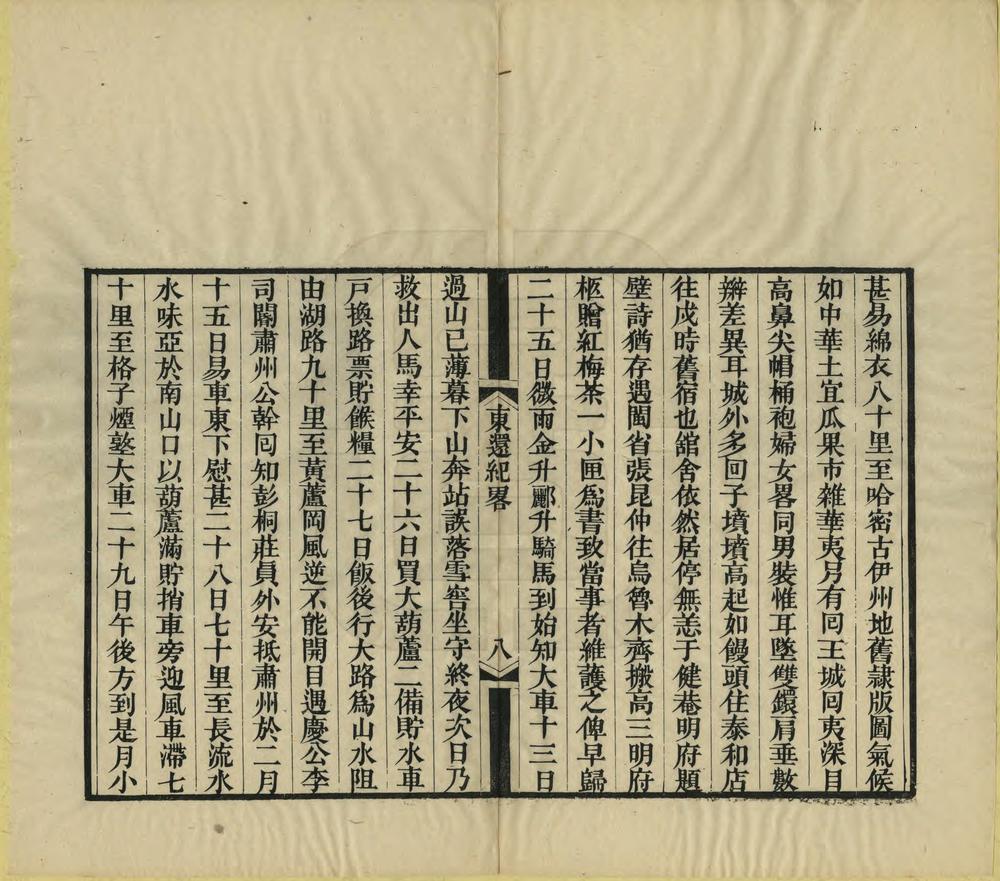 甚易綿衣八十里至哈密古伊州地舊隷版圖氣候
如中華土宜瓜果市雜華夷另有囘王城囘夷深目
高鼻尖帽桶袍婦女畧同男裝惟耳墜雙鐶肩垂數
辮差異耳城外多囘子墳墳高起如饅頭住泰和店
往戍時舊宿也舘舍依然居停無恙于健菴明府題
壁詩猶存遇閩省張昆仲往烏魯木齊搬高三明府
柩贈紅梅茶一小匣爲書致當事者維護之俾早歸
二十五日微雨金升酈升騎馬到始知大車十三日
東還紀畧
八
過山已薄暮下山奔站誤落雪窖坐守終夜次日乃
救出人馬幸平安二十六日買大葫蘆二備貯水車
戸換路票貯餱糧二十七日飯後行大路爲山水阻
由湖路九十里至黃蘆岡風逆不能開目遇慶公李
司關肅州公幹囘知彭桐莊員外安抵肅州於二月
十五日易車東下慰甚二十八日七十里至長流水
水味亞於南山口以葫蘆滿貯捎車旁迎風車滯七
十里至格子煙墩大車二十九日午後方到是月小